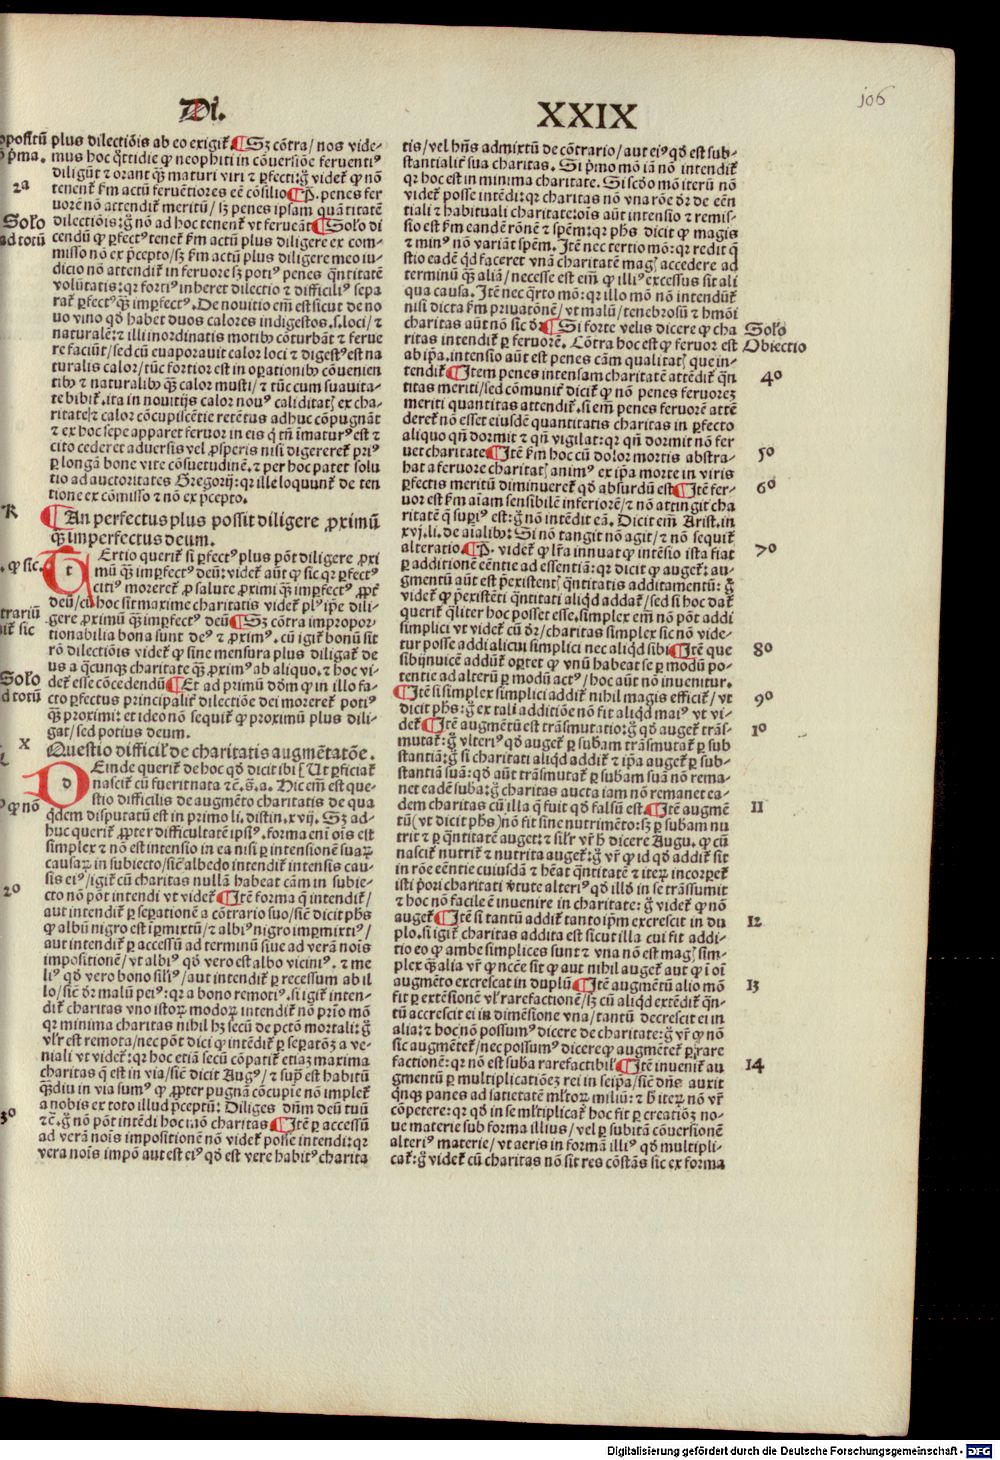 Di.
XXIX
106
plus dilectiõis ab eo exigiť. Sz cõtra/ nos vide-
mus hoc q̃ttidie ꝙ neophiti in cõuersiõe feruentiꝰ
diligũt ⁊ orant q̃ꝫ maturi viri ⁊ ꝑfecti: g̃ videť ꝙ nõ
tenenť ẜm actũ feruẽtiores eẽ cõsilio. P̃. penes fer
uorẽ nõ attendiť meritũ/ sꝫ penes ipsam quãtitatẽ
dilectiõis: g̃ nõ ad hoc tenenť vt ferueãt. Solo di
cendũ ꝙ ꝑfectꝰ teneť ẜm actũ plus diligere ex com-
misso nõ ex p̃cepto/ sꝫ ẜm actũ plus diligere meo iu-
dicio nõ attendiť in feruore sꝫ potiꝰ penes q̃ntitatẽ
volũtatis: qꝛ fortiꝰ inheret dilectio ⁊ difficiliꝰ sepa
rať ꝑfectꝰ q̃ꝫ imꝑfectꝰ. De nouitio em̃ est sicut de no
uo vino qd̃ habet duos calores indigestos .s. loci/ ⁊
naturalẽ: ⁊ illi inordinatis motibꝰ cõturbãt ⁊ ferue
re faciũt/ sed cũ euaporauit calor loci ⁊ digestꝰ est na
turalis calor/ tũc fortior est in oꝑationibꝰ cõuenien
tibꝰ ⁊ naturalibꝰ q̃ꝫ calor musti/ ⁊ tũc cum suauita-
te bibiť. ita in nouitijs calor nouꝰ caliditatꝭ ex cha-
ritate/ ⁊ calor cõcupiscẽtie retẽtus adhuc cõpugnãt
⁊ ex hoc sepe apparet feruor in eis q̃ tñ imaturꝰ est ⁊
cito cederet aduersis vel ꝓsperis nisi digereretť priꝰ
ꝑ longã bone vite cõsuetudinẽ. ⁊ per hoc patet solu
tio ad auctoritates Gregorij: qꝛ ille loquunť de ten
tione ex cõmisso ⁊ nõ ex p̃cepto.
An perfectus plus possit diligere ꝓximũ
q̃ꝫ imperfectus deum.
Ertio queriť si ꝑfectꝰ plus põt diligere ꝓxi
mũ q̃ꝫ imꝑfectꝰ deũ: videť aũt ꝙ sic qꝛ ꝑfectꝰ
citiꝰ moreretť ꝓ salute ꝓximi q̃ꝫ imꝑfectꝰ ꝓpt̃
deũ/ cũ hoc sit maxime charitatis videť plꝰ ip̃e dili-
gere ꝓximũ q̃ꝫ imꝑfectꝰ deũ. Sꝫ cõtra impropor-
tionabilia bona sunt deꝰ ⁊ ꝓximꝰ. cũ igiť bonũ sit
rõ dilectiõis videť ꝙ sine mensura plus diligať de
us a q̃cunqꝫ charitate q̃ꝫ ꝓximꝰ ab aliquo. ⁊ hoc vi-
deť esse cõcedendũ. Et ad primũ dõm ꝙ in illo fa-
cto ꝑfectus principaliť dilectiõe dei moreretť potiꝰ
q̃ꝫ proximi: et ideo nõ sequiť ꝙ proximũ plus dili-
gat/ sed potius deum.
Questio difficiľ de charitatis augmẽtatõe.
Einde queriť de hoc qd̃ dicit ibi [Ut ꝑficiať
nasciť cũ fuerit nata ⁊c̃. §. a. Hic em̃ est que-
stio difficilis de augmẽto charitatis de qua
q̃dem disputatũ est in primo li. distin. xvij. Sꝫ ad-
huc queriť ꝓpter difficultatẽ ipsiꝰ. forma eni ois est
simplex ⁊ nõ est intensio in ea nisi ꝑ intensionẽ suaꝝ
causaꝝ in subiecto/ sic̃ albedo intendiť intensis cau-
sis eiꝰ/ igiť cũ charitas nullã habeat cãm in subie-
cto nõ põt intendi vt videť. Itẽ forma q̃ intendiť/
aut intendiť ꝑ seꝑationẽ a cõtrario suo/ sic̃ dicit ph̃s
ꝙ albũ nigro est iꝑmixtũ/ ⁊ albiꝰ nigro imꝑmixtiꝰ/
aut intendiť ꝑ accessũ ad terminũ siue ad verã nois
impositionẽ/ vt albiꝰ qd̃ vero est albo viciniꝰ. ⁊ me
liꝰ qd̃ vero bono siľiꝰ/ aut intendiť ꝑ recessum ab il
lo/ sic̃ dr̃ malũ peiꝰ: qꝛ a bono remotiꝰ. si igiť inten-
diť charitas vno istoꝝ modoꝝ intendiť nõ prĩo mõ
qꝛ minima charitas nihil hꝫ secũ de pctõ mortali: g̃
vl'r est remota/ nec põt dici ꝙ intẽdiť ꝑ seꝑatõꝫ a ve-
niali vt videť: qꝛ hoc etiã secũ cõpatiť etiaꝫ maxima
charitas q̃ est in via/ sic̃ dicit Augꝰ/ ⁊ sup̃ est habitũ
q̃ꝫdiu in via sumꝰ ꝙ ꝓpter pugnã cõcupie nõ impleť
a nobis ex toto illud p̃ceptũ: Diliges dñm deũ tuũ
⁊c̃. g̃ nõ põt intẽdi hoc mõ charitas. Itẽ ꝑ accessũ
ad verã nois impositionẽ nõ videť posse intendi: qꝛ
vera nois impõ aut est eiꝰ qd̃ est vere habitꝰ charita
tis/ vel hñs admixtũ de cõtrario/ aut eiꝰ qd̃ est sub-
stantialiť sua charitas. Si p̃mo mõ iã nõ intendiť
qꝛ hoc est in minima charitate. Si scd̃o mõ iterũ nõ
videť posse intẽdi: qꝛ charitas nõ vna rõe dr̃ de eẽn
tiali ⁊ habituali charitate: ois aũt intensio ⁊ remis-
sio est ẜm eandẽ rõnẽ ⁊ spẽm: qꝛ ph̃s dicit ꝙ magis
⁊ minꝰ nõ variãt spẽm. Itẽ nec tertio mõ: qꝛ redit q̃
stio eadẽ q̃d faceret vnã charitatẽ magꝭ accedere ad
terminũ q̃ꝫ aliã/ necesse est em̃ ꝙ illiꝰ excessus sit ali
qua causa. Itẽ nec q̃rto mõ: qꝛ illo mõ nõ intendũť
nisi dicta ẜm priuatõnẽ/ vt malũ/ tenebrosũ ⁊ hmõi
charitas aũt nõ sic dr̃. Si forte velis dicere ꝙ cha
ritas intendiť ꝑ feruorẽ. Cõtra hoc est ꝙ feruor est
ab ip̃a. intensio aũt est penes cãm qualitatꝭ que in-
tendiť. Item penes intensam charitatẽ attẽdiť q̃n
titas meriti/ sed cõmuniť diciť ꝙ nõ penes feruoreꝫ
meriti quantitas attendiť. si em̃ penes feruorẽ attẽ
dereť nõ esset eiusdẽ quantitatis charitas in ꝑfecto
aliquo qñ dormit ⁊ qñ vigilat: qꝛ qñ dormit nõ fer
uet charitate. Itẽ ẜm hoc cũ dolor mortis abstra-
hat a feruore charitatꝭ animꝰ ex ip̃a morte in viris
ꝑfectis meritũ diminuereť qd̃ absurdũ est. Itẽ fer-
uor est ẜm aiam sensibilẽ inferiorẽ/ ⁊ nõ attingit cha
ritatẽ q̃ suꝑiꝰ est: g̃ nõ intẽdit eã. Dicit em̃ Arist. in
xvj. li. de aialibꝰ: Si nõ tangit nõ agit/ ⁊ nõ sequiť
alteratio. P̃. videť ꝙ lr̃a innuat ꝙ intẽsio ista fiat
ꝑ additionẽ eẽntie ad essentiã: qꝛ dicit ꝙ augeť: au-
gmentũ aũt est p̃existentꝭ q̃ntitatis additamentũ: g̃
videť ꝙ p̃existẽti q̃ntitati aliqd̃ addať/ sed si hoc dať
queriť q̃liter hoc posset esse. simplex em̃ nõ põt addi
simplici vt videť cũ dr̃/ charitas simplex sic nõ vide-
tur posse addi alicui simplici nec aliqd̃ sibi. Itẽ que
sibijnuicẽ addũť oꝑtet ꝙ vnũ habeat se ꝑ modũ po-
tentie ad alterũ ꝑ modũ actꝰ/ hoc aũt nõ inuenitur.
Itẽ si simplex simplici addiť nihil magis efficiť/ vt
dicit ph̃s: g̃ ex tali additiõe nõ fit aliqd̃ maiꝰ vt vi-
deť. Itẽ augmẽtũ est trãsmutatio: g̃ qd̃ augeť trãs-
mutať: g̃ vlteriꝰ qd̃ augeť ꝑ subam trãsmutať ꝑ sub
stantiã: g̃ si charitati aliqd̃ addiť ⁊ ip̃a augeť ꝑ sub-
stantiã suã: qd̃ aũt trãsmutať ꝑ subam suã nõ rema-
net eadẽ suba: g̃ charitas aucta iam nõ remanet ea-
dem charitas cũ illa q̃ fuit qd̃ falsũ est. Itẽ augmẽ
tũ (vt dicit ph̃s) nõ fit sine nutrimẽto: sꝫ ꝑ subam nu
trit ⁊ ꝑ q̃ntitatẽ auget: ⁊ sil'r vr̃ h̃ dicere Augu. ꝙ cũ
nasciť nutriť ⁊ nutrita augeť: g̃ vr̃ ꝙ id qd̃ addiť sit
in rõe eẽntie cuiusdã ⁊ hẽat q̃ntitatẽ ⁊ iteꝝ incorpeť
isti p̃ori charitati v̓tute alteriꝰ qd̃ illd̃ in se trãssumit
⁊ hoc nõ facile ẽ inuenire in charitate: g̃ videť ꝙ nõ
augeť. Itẽ si tantũ addiť tanto ip̃m excrescit in du
plo. si igiť charitas addita est sicut illa cui fit addi-
tio eo ꝙ ambe simplices sunt ⁊ vna nõ est magꝭ sim-
plex q̃ꝫ alia vr̃ ꝙ nccẽ sit ꝙ aut nihil augeť aut ꝙ i oi
augmẽto excrescat in duplũ. Itẽ augmẽtũ alio mõ
fit ꝑ extẽsionẽ vl' rarefactionẽ/ sꝫ cũ aliqd̃ extẽdiť q̃n-
tũ accrescit ei in dimẽsione vna/ tantũ decrescit ei in
alia: ⁊ hoc nõ possumꝰ dicere de charitate: g̃ vr̃ ꝙ nõ
sic augmẽteť/ nec possumꝰ dicere ꝙ augmẽteť ꝑ rare
factionẽ: qꝛ nõ est suba rarefactibiľ. Itẽ inueniť au
gmentũ ꝑ multiplicatiõeꝫ rei in seip̃a/ sic̃ dñs auxit
q̃nqꝫ panes ad satietatẽ ml'toꝝ miliũ: ⁊ h̃ iteꝝ nõ vr̃
cõpetere: qꝛ qd̃ in se ml'tiplicať hoc fit ꝑ creatiõꝫ no-
ue materie sub forma illius/ vel ꝑ subitã cõuersionẽ
alteriꝰ materie/ vt aeris in formã illiꝰ qd̃ multipli-
cať: g̃ videť cũ charitas nõ sit res cõstãs sic ex forma
ppositũ
p̃ma.
2a
Solo
ad totũ
R
. ꝙ sic.
trariũ
sic
Solo
d totũ
x
ꝙ nõ
2o
3o
Solo
Obiectio
4o
5o
6o
7o
8o
9o
10
11
12
13
14
Digitalisierung gefördert durch die Deutsche Forschungsgemeinschaft - DFG